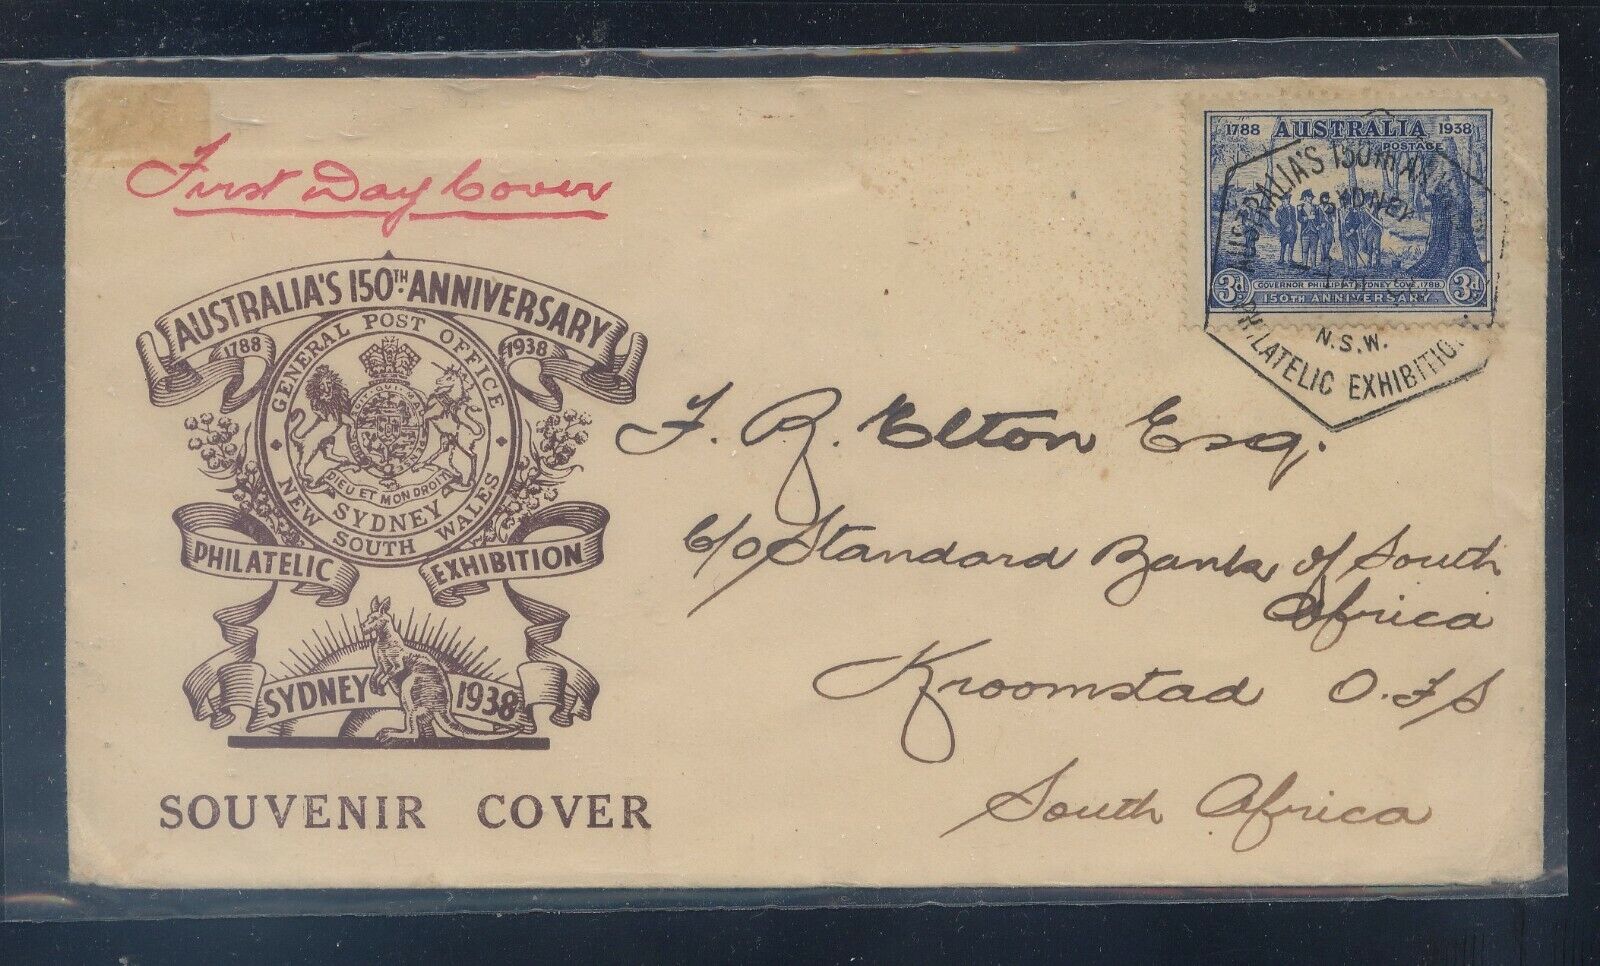 First Day Cover
AUSTRALIA'S 150TH ANNIVERSARY
1788 1938
GENERAL POST OFFICE
DIEU ET MON DROIT
SYDNEY
NEW SOUTH WALES
PHILATELIC EXHIBITION
SYDNEY 1938
SOUVENIR COVER
1788 AUSTRALIA 1938
POSTAGE
3d GOVERNOR PHILLIP AT SYDNEY COVE, 1788. 3d
150TH ANNIVERSARY
AUSTRALIA'S 150TH
SYDNEY
N.S.W.
PHILATELIC EXHIBITION
F. R. Elton Esq.
C/o Standard Bank of South
Africa
Kroonstad O.F.S
South Africa